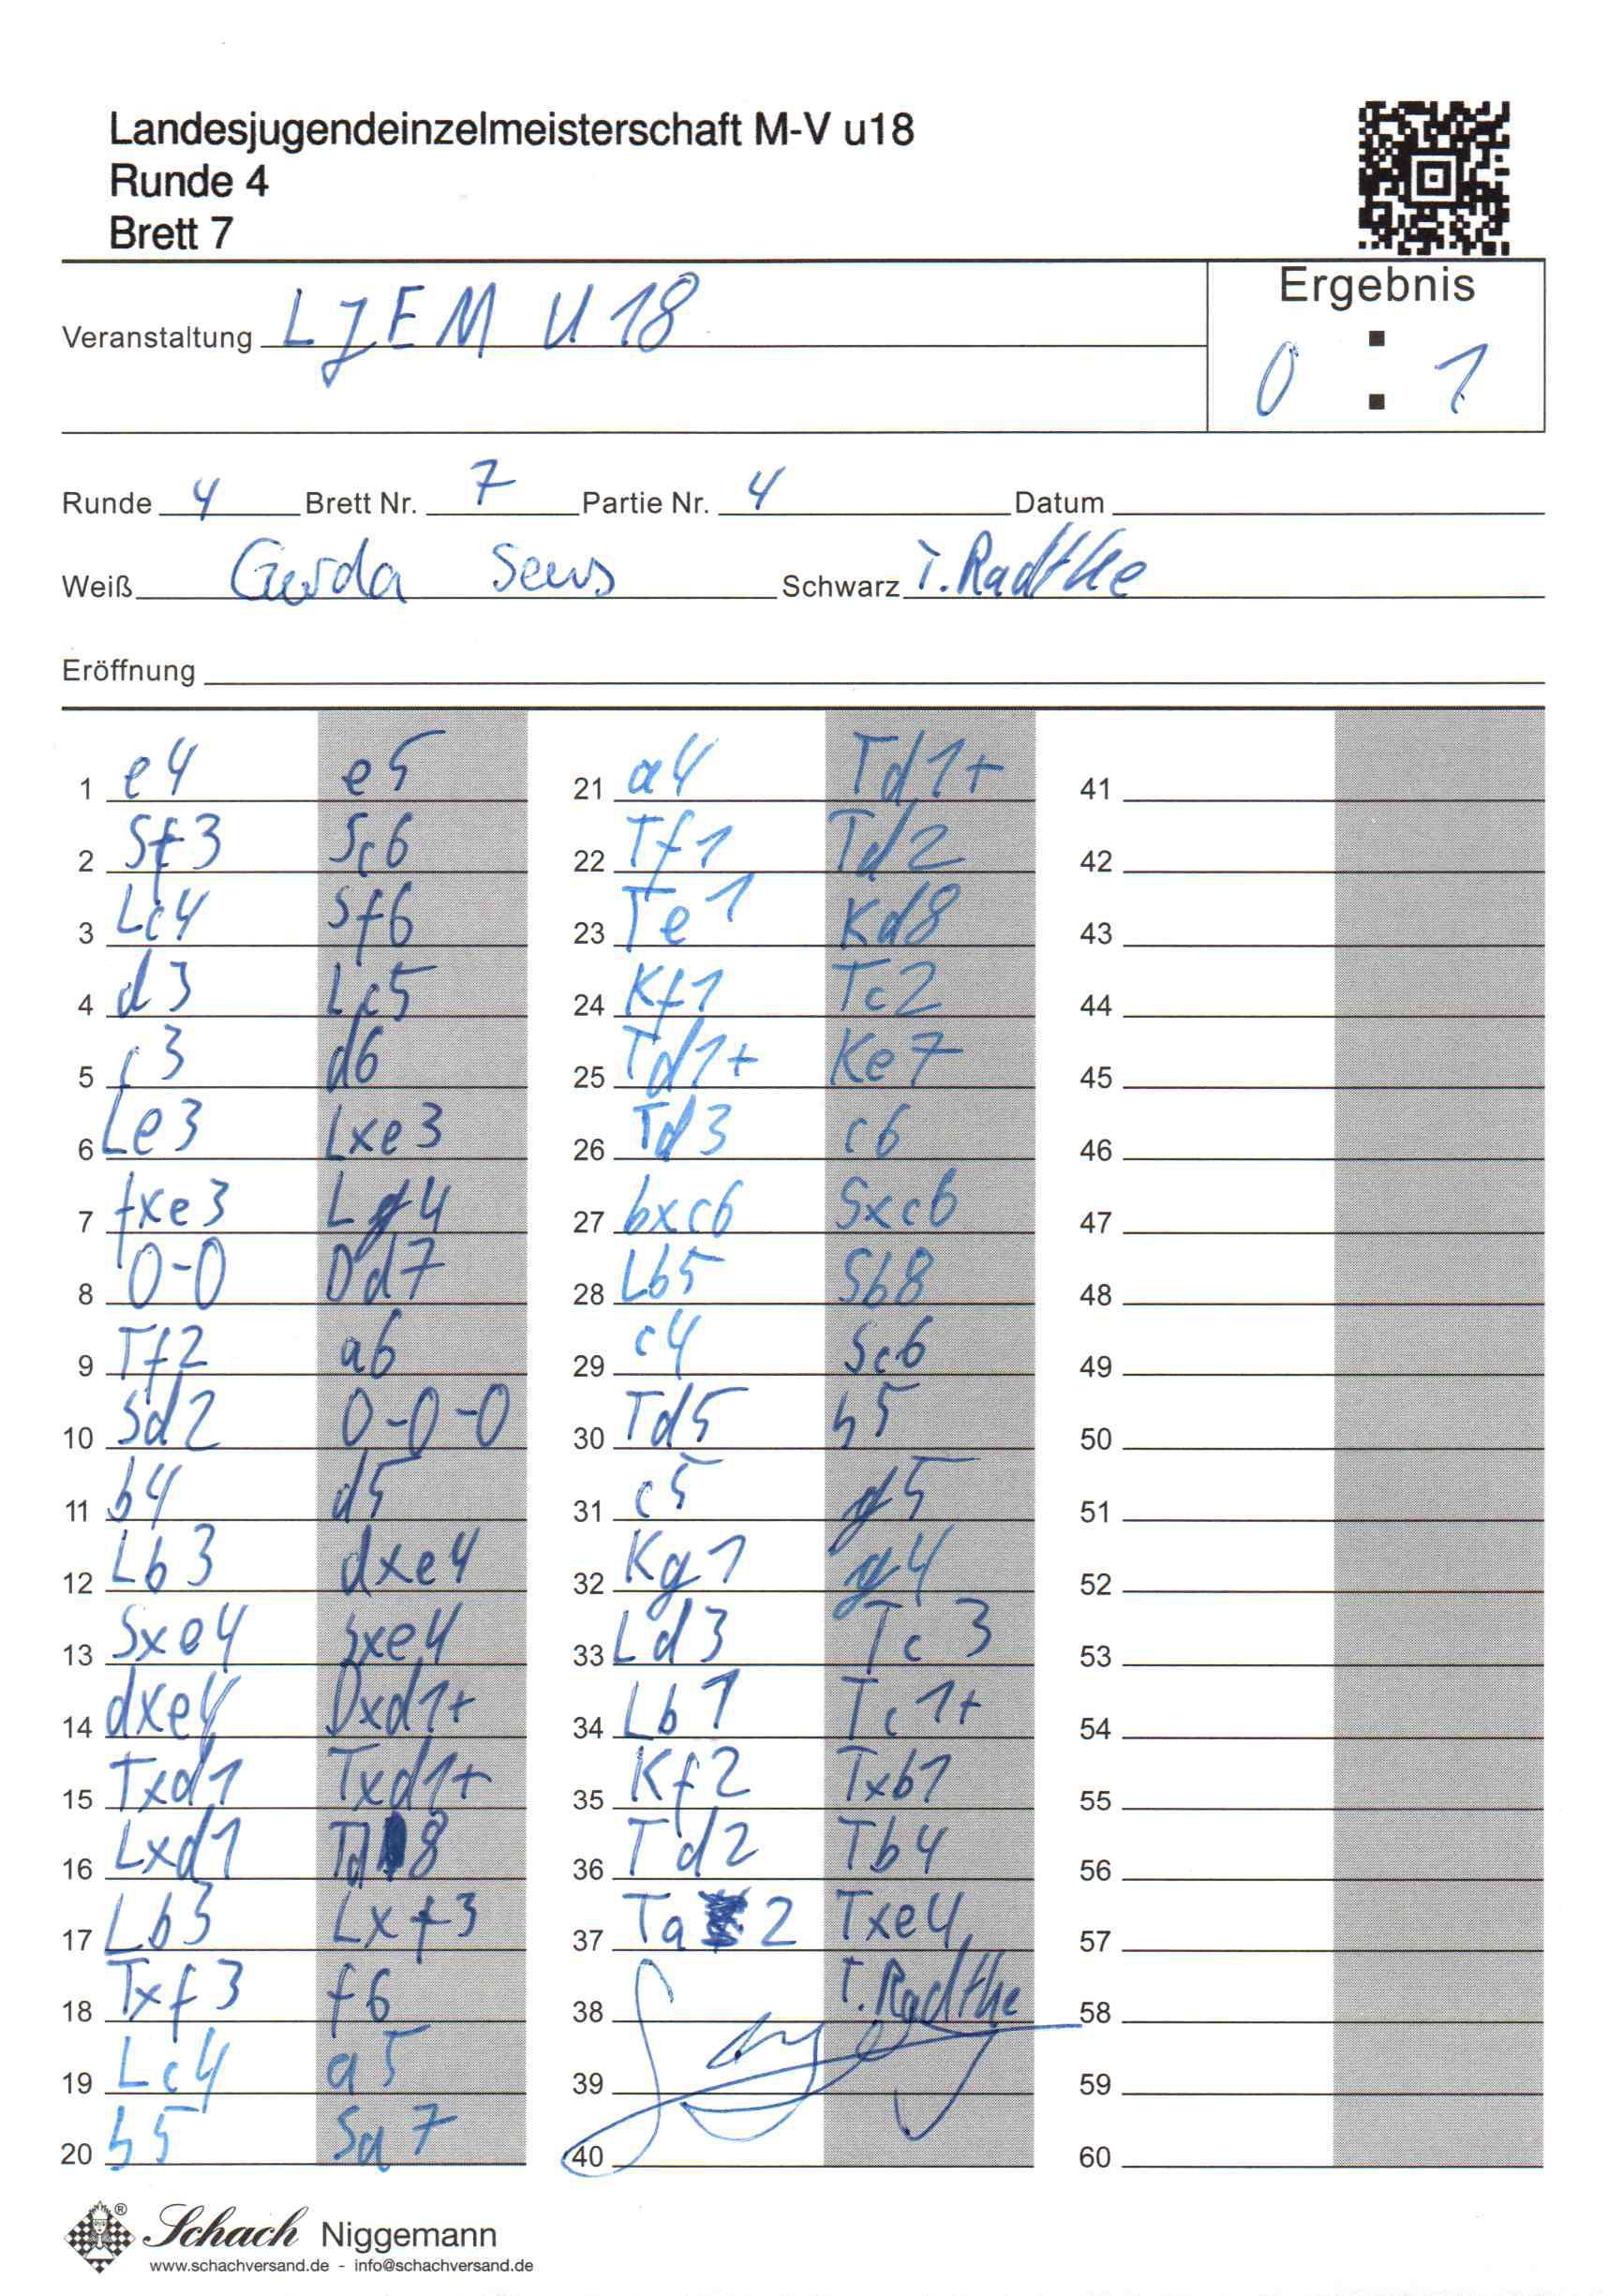 Landesjugendeinzelmeisterschaft M-V u18
Runde 4
Brett 7
Ergebnis
Veranstaltung LJEM U18
0 : 1
Runde 4 Brett Nr. 7 Partie Nr. 4 Datum
Weiß Gerda Sews Schwarz T. Radtke
Eröffnung
1 e4 e5 21 a4 Td1+ 41
2 Sf3 Sc6 22 Tf1 Td2 42
3 Lc4 Sf6 23 Te1 Kd8 43
4 d3 Lc5 24 Kf1 Tc2 44
5 c3 d6 25 Td1+ Ke7 45
6 Le3 Lxe3 26 Td3 c6 46
7 fxe3 Lg4 27 bxc6 Sxc6 47
8 0-0 Dd7 28 Lb5 Sb8 48
9 Tf2 a6 29 c4 Sc6 49
10 Sd2 0-0-0 30 Td5 h5 50
11 b4 d5 31 c5 g5 51
12 Lb3 dxe4 32 Kg1 g4 52
13 Sxe4 Sxe4 33 Ld3 Tc3 53
14 dxe4 Dxd1+ 34 Lb1 Tc1+ 54
15 Txd1 Txd1+ 35 Kf2 Txb1 55
16 Lxd1 Td8 36 Td2 Tb4 56
17 Lb3 Lxf3 37 Ta2 Txe4 57
18 Txf3 f6 38 T. Radtke 58
19 Lc4 a5 39 59
20 b5 Sa7 40 60
Schach Niggemann
www.schachversand.de - info@schachversand.de